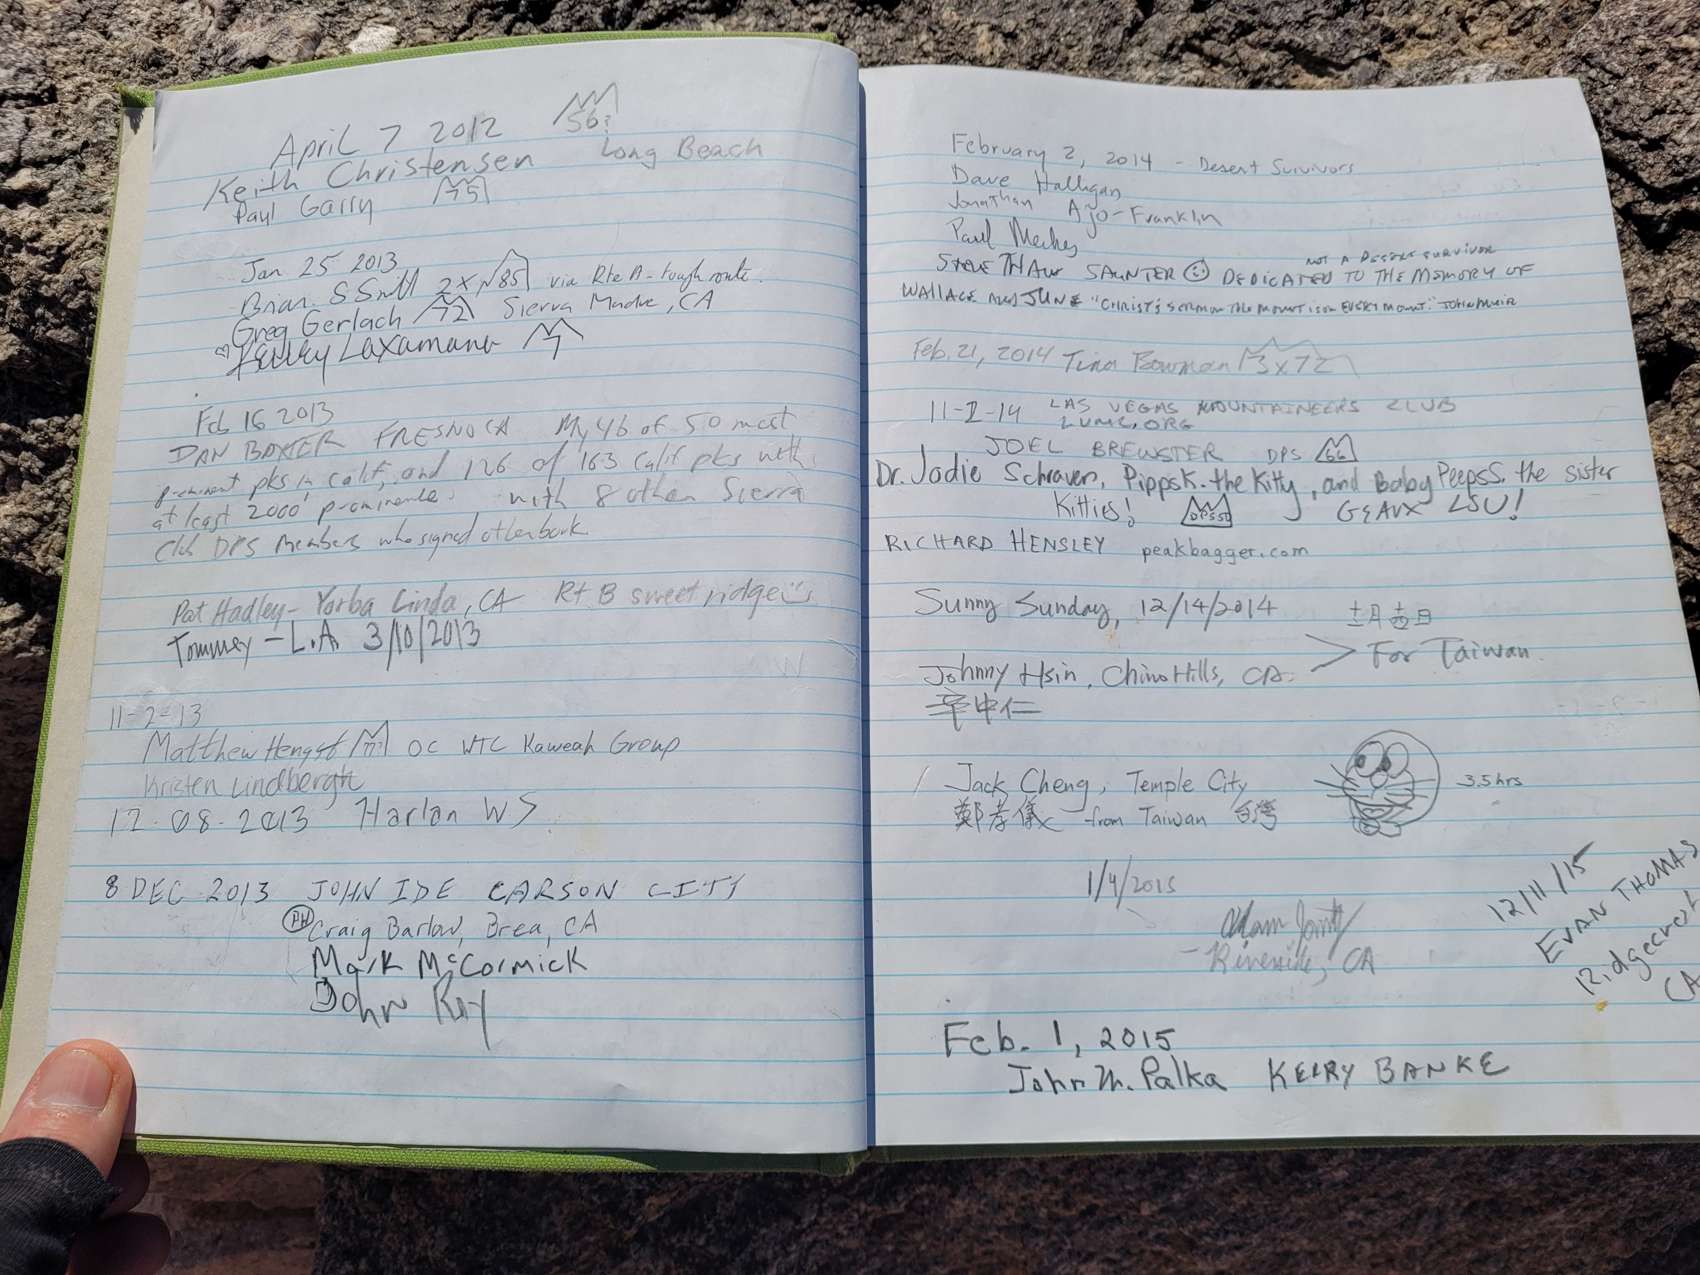 April 7 2012 56?
Keith Christensen Long Beach
Paul Garry 75
Jan 25 2013
Brian S Smith 2x√85 via Rte A - tough route.
Greg Gerlach 72 Sierra Madre, CA
♡ Kelley Laxamana 7
Feb 16 2013
DAN BAXTER FRESNO CA My 46 of 50 most
prominent pks in calif, and 126 of 163 Calif pks with
at least 2000' prominence. with 8 other Sierra
Club DPS members who signed other book
Pat Hadley - Yorba Linda, CA Rt B sweet ridge
Tommey - L.A. 3/10/2013
11-2-13
Matthew Hengst OC WTC Kaweah Group
Kristen Lindbergh
12.08.2013 Harlan WS
8 DEC 2013 JOHN IDE CARSON CITY
Craig Barlow, Brea, CA
Mark McCormick
John Roy
February 2, 2014 - Desert Survivors
Dave Halligan
Jonathan Ajo-Franklin
Paul
NOT A DESERT SURVIVOR
STEVE THAW SAUNTER ☺ DEDICATED TO THE MEMORY OF
WALLACE AND JUNE "CHRIST'S SERMON THE MOUNT IS ON EVERY MOUNT." JOHN MUIR
Feb. 21, 2014 Tina Bowman 3x72
11-2-14 LAS VEGAS MOUNTAINEERS CLUB
LVMC.ORG
JOEL BREWSTER DPS 56
Dr. Jodie Schraven, PippsK. the Kitty, and Baby PeepsS. the sister
Kitties! DPS50 GEAUX LSU!
RICHARD HENSLEY peakbagger.com
Sunny Sunday, 12/14/2014 十二月十四日
> For Taiwan.
Johnny Hsin, Chino Hills, CA.
辛中仁
Jack Cheng, Temple City 3.5 hrs
鄭孝儀 from Taiwan 台灣
1/4/2015
Adam
- Riverside, CA
12/11/15
EVAN THOMAS
Ridgecrest
CA
Feb. 1, 2015
John M. Palka KERRY BANKE